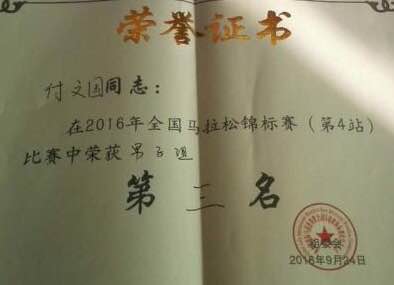 荣誉证书
付文国同志：
在2016年全国马拉松锦标赛（第4站）
比赛中荣获男子组
第三名
组委会
2016年9月24日